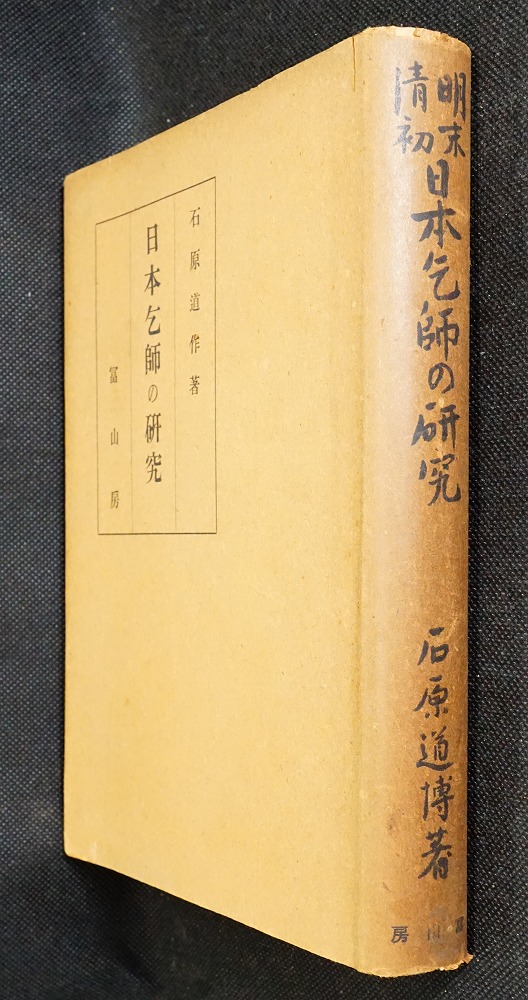 石原道作著
日本乞師の研究
冨山房
明末
清初
日本乞師の研究
石原道博著
冨山房